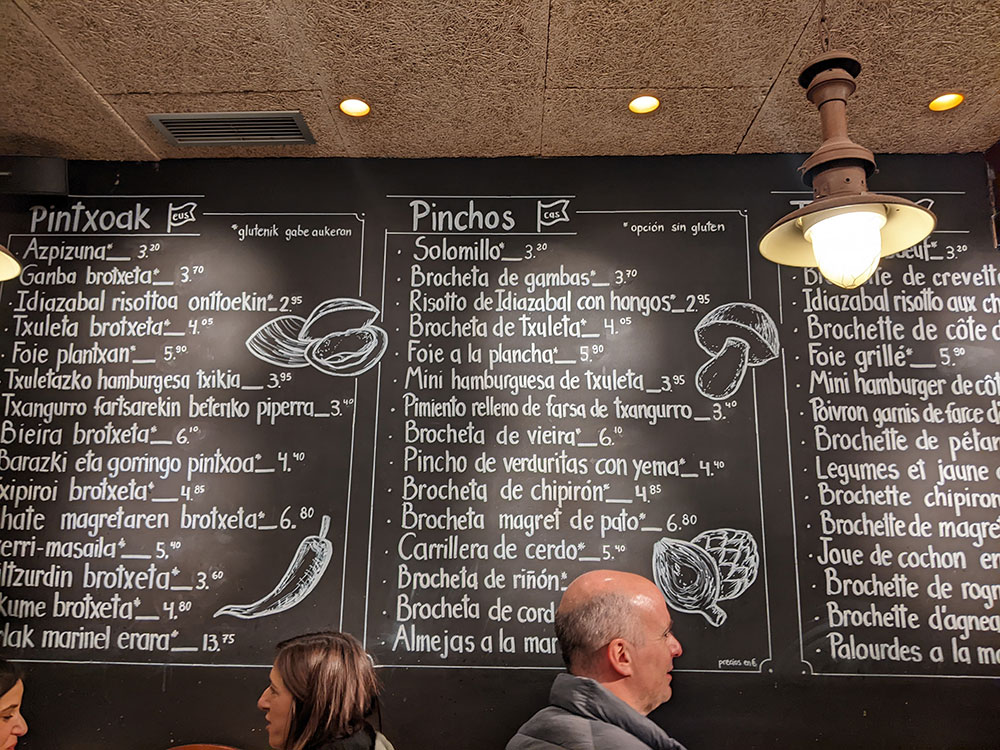 Pintxoak eus
*glutenik gabe aukeran
Azpizuna* 3.20
Ganba brotxeta* 3.70
Idiazabal risottoa onttoekin* 2.95
Txuleta brotxeta* 4.05
Foie plantxan* 5.90
Txuletazko hamburgesa txikia 3.95
Txangurro fartsarekin beteriko piperra 3.40
Bieira brotxeta* 6.10
Barazki eta gorringo pintxoa* 4.40
brotxeta* 4.85
magretaren brotxeta* 6.80
5.40
brotxeta* 3.60
brotxeta* 4.80
marinel erara* 13.75
Pinchos cas
*opción sin gluten
· Solomillo* 3.20
· Brocheta de gambas* 3.70
· Risotto de Idiazabal con hongos* 2.95
· Brocheta de txuleta* 4.05
· Foie a la plancha* 5.90
· Mini hamburguesa de txuleta 3.95
· Pimiento relleno de farsa de txangurro 3.40
· Brocheta de vieira* 6.10
· Pincho de verduritas con yema* 4.40
· Brocheta de chipirón* 4.85
· Brocheta magret de pato* 6.80
· Carrillera de cerdo* 5.40
· Brocheta de riñón*
· Brocheta de
Almejas a la
precios en €
3.20
de crevette
Idiazabal risotto aux
· Brochette de côte
· Foie grillé* 5.90
· Mini hamburger de
· Poivron garnis de farce
· Brochette de
· Legumes et jaune
· Brochette chipiron
· Brochette de
· Joue de cochon
· Brochette de
· Brochette
· Palourdes a la